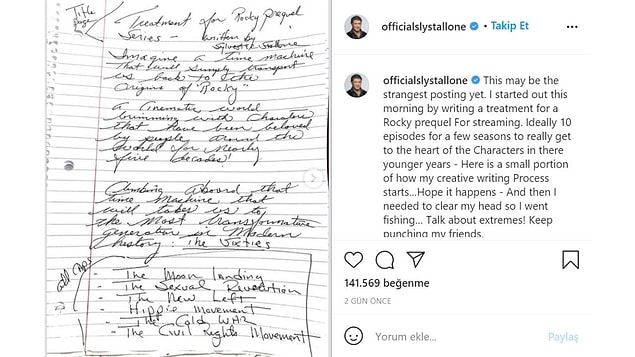 Title
page
Treatment for Rocky prequel
Series - written by
Sylvester Stallone
Imagine a time machine
that will simply transport
us back to the
origins of "Rocky"
a Cinematic world
brimming with Characters
that have been beloved
by people around the
world for nearly
five Decades!
Climbing aboard that
time machine that
will takes us to
the most transformative
generation in Modern
history: The Sixties
all caps
- The Moon landing
- The Sexual Revolution
- The New Left
- Hippie Movement
- The Cold WAR
- The Civil Rights Movement
officialslystallone • Takip Et
officialslystallone This may be the
strangest posting yet. I started out this
morning by writing a treatment for a
Rocky prequel For streaming. Ideally 10
episodes for a few seasons to really get
to the heart of the Characters in there
younger years - Here is a small portion
of how my creative writing Process
starts...Hope it happens - And then I
needed to clear my head so I went
fishing... Talk about extremes! Keep
punching my friends.
141.569 beğenme
2 GÜN ÖNCE
Yorum ekle...
Paylaş